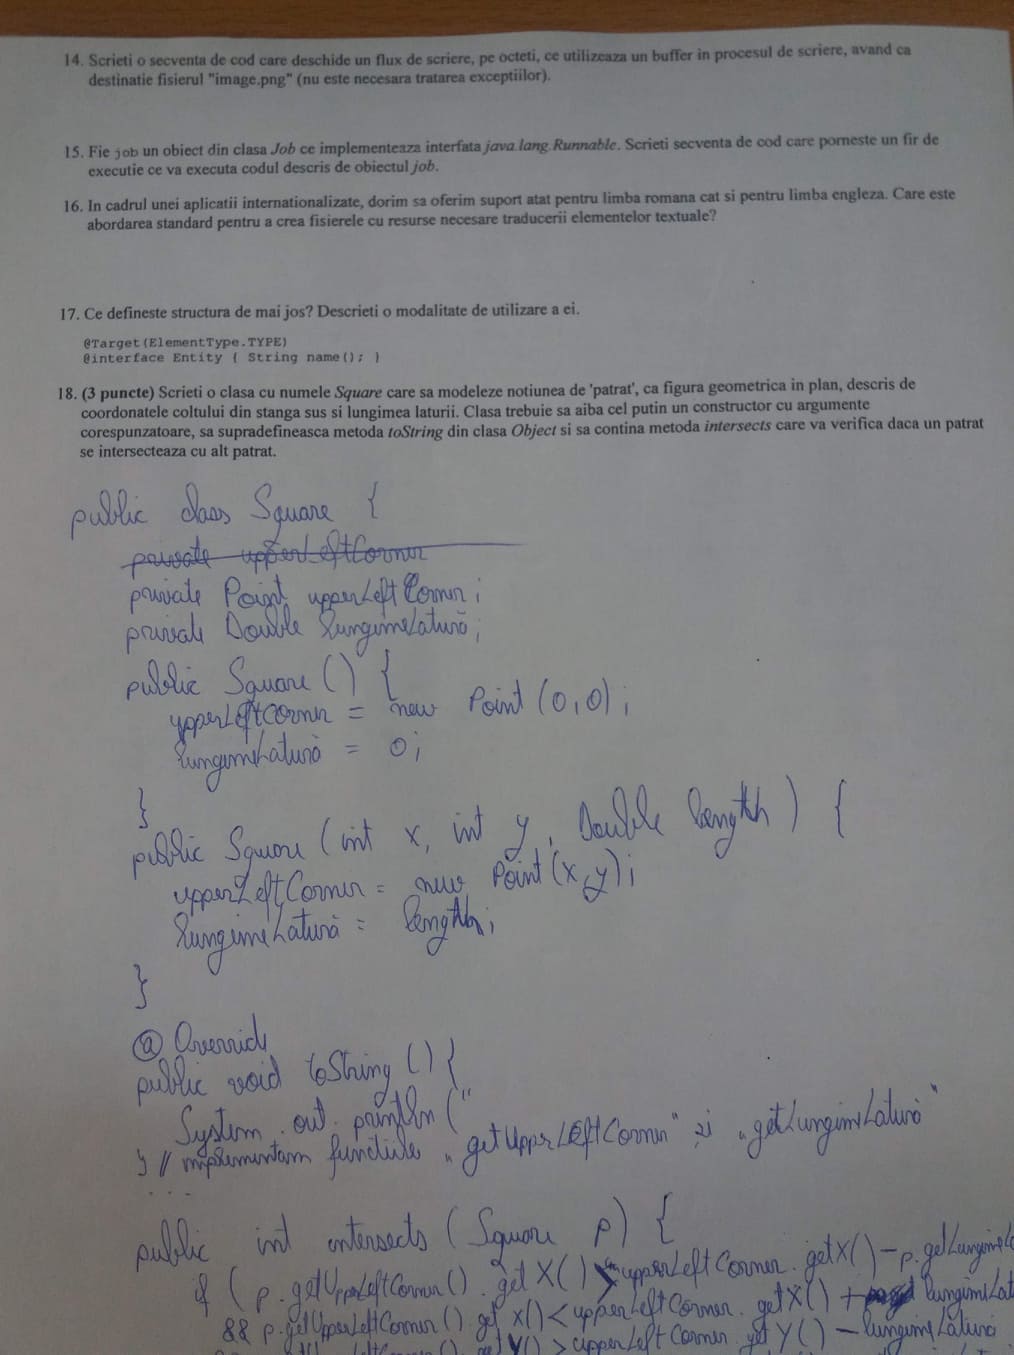 14. Scrieti o secventa de cod care deschide un flux de scriere, pe octeti, ce utilizeaza un buffer in procesul de scriere, avand ca
destinatie fisierul "image.png" (nu este necesara tratarea exceptiilor).
15. Fie job un obiect din clasa Job ce implementeaza interfata java.lang.Runnable. Scrieti secventa de cod care porneste un fir de
executie ce va executa codul descris de obiectul job.
16. In cadrul unei aplicatii internationalizate, dorim sa oferim suport atat pentru limba romana cat si pentru limba engleza. Care este
abordarea standard pentru a crea fisierele cu resurse necesare traducerii elementelor textuale?
17. Ce defineste structura de mai jos? Descrieti o modalitate de utilizare a ei.
@Target(ElementType.TYPE)
@interface Entity { String name(); }
18. (3 puncte) Scrieti o clasa cu numele Square care sa modeleze notiunea de 'patrat', ca figura geometrica in plan, descris de
coordonatele coltului din stanga sus si lungimea laturii. Clasa trebuie sa aiba cel putin un constructor cu argumente
corespunzatoare, sa supradefineasca metoda toString din clasa Object si sa contina metoda intersects care va verifica daca un patrat
se intersecteaza cu alt patrat.
public class Square {
private upperLeftCorner
private Point upperLeftCorner;
private Double lungimeLatură;
public Square () {
upperLeftCorner = new Point (0,0);
lungimeLatură = 0;
}
public Square (int x, int y, Double length) {
upperLeftCorner = new Point (x,y);
lungimeLatură = length;
}
@Override
public void toString () {
System.out.println ("
} // implementam functiile „getUpperLeftCorner" și „getLungimeLatură"
...
public int intersects (Square p) {
if (p.getUpperLeftCorner().getX() > upperLeftCorner.getX() - p.getLungimeL
&& p.getUpperLeftCorner().getX() < upperLeftCorner.getX() + lungimeLat
getY() > upperLeftCorner.getY() - lungimeLatură